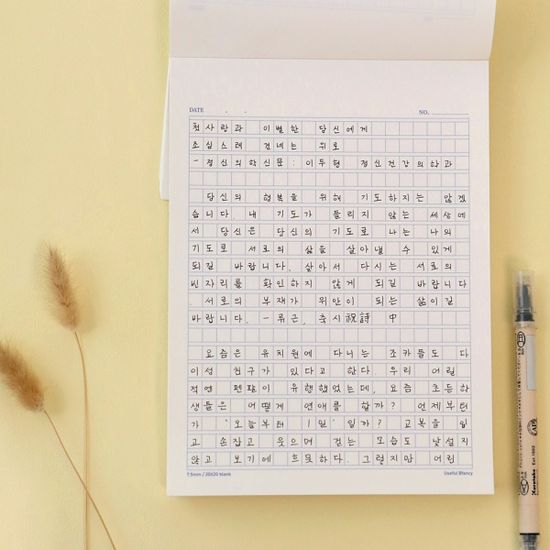 DATE . . NO.
첫사랑과 이별한 당신에게
조심스레 건네는 위로
- 정신의학신문 : 이두형 정신건강의학과
당신의 행복을 위해 기도하지는 않겠
습니다. 내 기도가 들리지 않는 세상에
서 당신은 당신의 기도로 나는 나의
기도로 서로의 삶을 살아낼 수 있게
되길 바랍니다. 살아서 다시는 서로의
빈자리를 확인하지 않게 되길 바랍니다
서로의 부재가 위안이 되는 삶이길
바랍니다. - 류근, 축시祝詩 中
요즘은 유치원에 다니는 조카들도 다
이성 친구가 있다고 한다 우리 어릴
적엔 펜팔이 유행했었는데, 요즘 초등학
생들은 어떻게 연애를 할까? 언제부턴
가 '오늘부터 1일' 일까? 교복을 입
고 손잡고 웃으며 걷는 모습도 낯설지
않고 보기에 흐뭇하다. 그렇지만 어린
7.5mm / 20X20 blank Useful Blancy
Kuretake